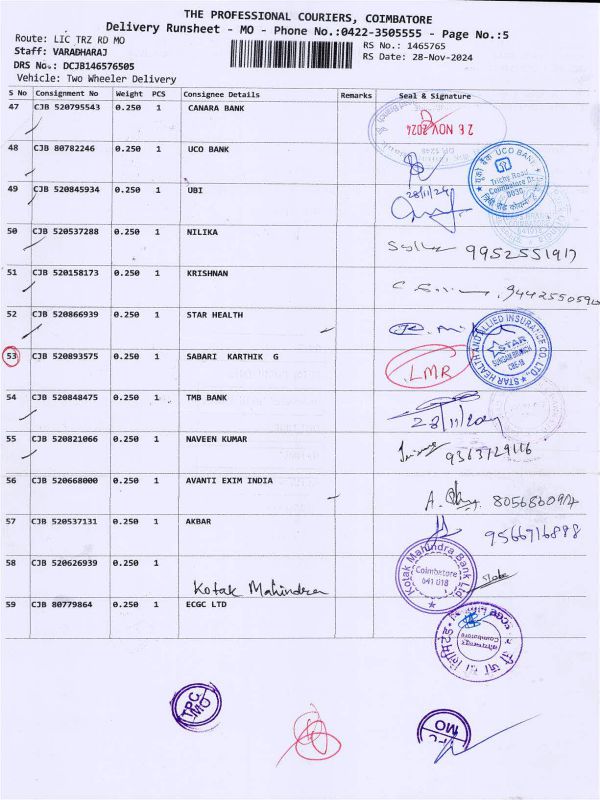 THE PROFESSIONAL COURIERS, COIMBATORE
Delivery Runsheet - MO - Phone No.:0422-3505555 - Page No.:5
Route: LIC TRZ RD MO
RS No.: 1465765
Staff: VARADHARAJ
RS Date: 28-Nov-2024
DRS No.: DCJB146576505
Vehicle: Two Wheeler Delivery
S No Consignment No Weight PCS Consignee Details Remarks Seal & Signature
47 CJB 520795543 0.250 1 CANARA BANK
26 NOV 2024
48 CJB 80782246 0.250 1 UCO BANK
UCO BANK
Trichy Road
Coimbatore Dt.
49 CJB 520845934 0.250 1 UBI
28/11/24
50 CJB 520537288 0.250 1 NILIKA
9952551917
51 CJB 520158173 0.250 1 KRISHNAN
52 CJB 520866939 0.250 1 STAR HEALTH
STAR HEALTH AND ALLIED INSURANCE CO. LTD.,
STAR
CBE-18
53 CJB 520893575 0.250 1 SABARI KARTHIK G
LMR
54 CJB 520848475 0.250 1 TMB BANK
28/11/2024
55 CJB 520821066 0.250 1 NAVEEN KUMAR
9363729116
56 CJB 520668000 0.250 1 AVANTI EXIM INDIA
57 CJB 520537131 0.250 1 AKBAR
9566716898
58 CJB 520626939 0.250 1
Kotak Mahindra
Kotak Mahindra Bank Ltd
Coimbatore
641 018
59 CJB 80779864 0.250 1 ECGC LTD
Coimbatore
TPC
MO
MO